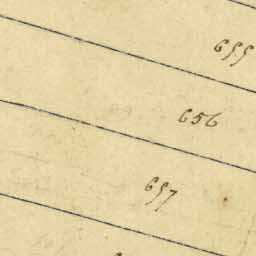 655
656
657